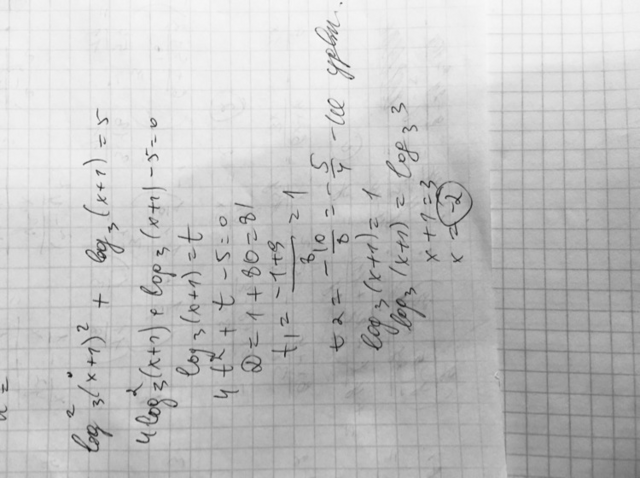 x =
log²₃(x+1)² + log₃(x+1) = 5
4log²₃(x+1) + log₃(x+1) - 5 = 0
log₃(x+1) = t
4t² + t - 5 = 0
D = 1 + 80 = 81
t1 = (-1+9)/8 = 1
t2 = -10/8 = -5/4 - не удвл.
log₃(x+1) = 1
log₃(x+1) = log₃3
x+1=3
x = -2